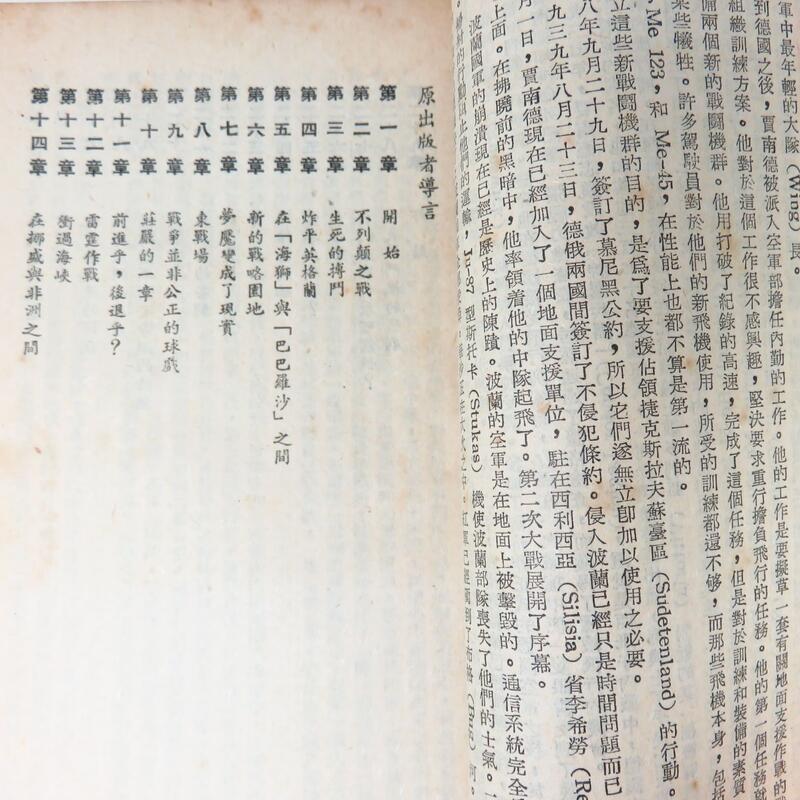 軍中最年輕的大隊(Wing)長。
到德國之後，賈南德被派入空軍部擔任內勤的工作。他的工作是要擬草一套有關地面支援作戰的
組織訓練方案。他對於這個工作很不感興趣，堅決要求重行擔負飛行的任務。他的第一個任務就
備兩個新的戰鬪機群。他用打破了紀錄的高速，完成了這個任務，但是對於訓練和裝備的素質
某些犧牲。許多駕駛員對於他們的新飛機使用，所受的訓練都還不够，而那些飛機本身，包括
Me 123，和 Me-45，在性能上也都不算是第一流的。
立這些新戰鬪機群的目的，是爲了要支援佔領捷克斯拉夫蘇臺區(Sudetenland)的行動。
八年九月二十九日，簽訂了慕尼黑公約，所以它們遂無立卽加以使用之必要。
九三九年八月二十三日，德俄兩國間簽訂了不侵犯條約。侵入波蘭已經只是時間問題而已
月一日，賈南德現在已經加入了一個地面支援單位，駐在西利西亞(Silisia)省李希勞(Re
上面。在拂曉前的黑暗中，他率領着他的中隊起飛了。第二次大戰展開了序幕。
波蘭國軍的崩潰現在已經是歷史上的陳蹟。波蘭的空軍是在地面上被擊毀的。通信系統完全
Ju-87 型斯托卡(Stukas)機使波蘭部隊喪失了他們的士氣。
原出版者導言
第一章 開始
第二章 不列顛之戰
第三章 生死的搏鬥
第四章 炸平英格蘭
第五章 在「海獅」與「巴巴羅沙」之間
第六章 新的戰略園地
第七章 夢魘變成了現實
第八章 東戰場
第九章 戰爭並非公正的球戲
第十章 莊嚴的一章
第十一章 前進乎，後退乎？
第十二章 雷霆作戰
第十三章 衝過海峽
第十四章 在挪威與非洲之間